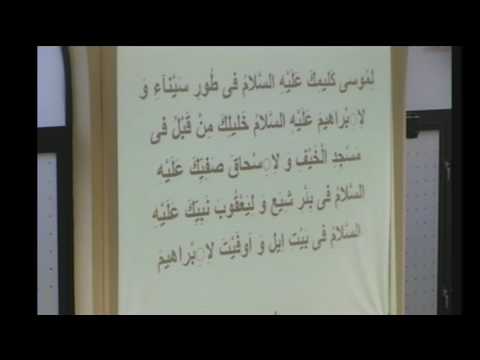 لِمُوسى كَليمِكَ عَلَيْهِ السَّلامُ فى طُورِ سَيْناَءِ وَ
لِاِبْراهيمَ عَلَيْهِ السَّلامُ خَليلِكَ مِنْ قَبْلُ فى
مَسْجِدِ الْخَيْفِ وَ لِاِسْحاقَ صَفِيِّكَ عَلَيْهِ
السَّلامُ فى بِئْرِ شِيَعٍ وَ لِيَعْقُوبَ نَبِيِّكَ عَلَيْهِ
السَّلامُ فى بَيْتِ ايلٍ وَ اَوْفَيْتَ لِاِبْراهيمَ